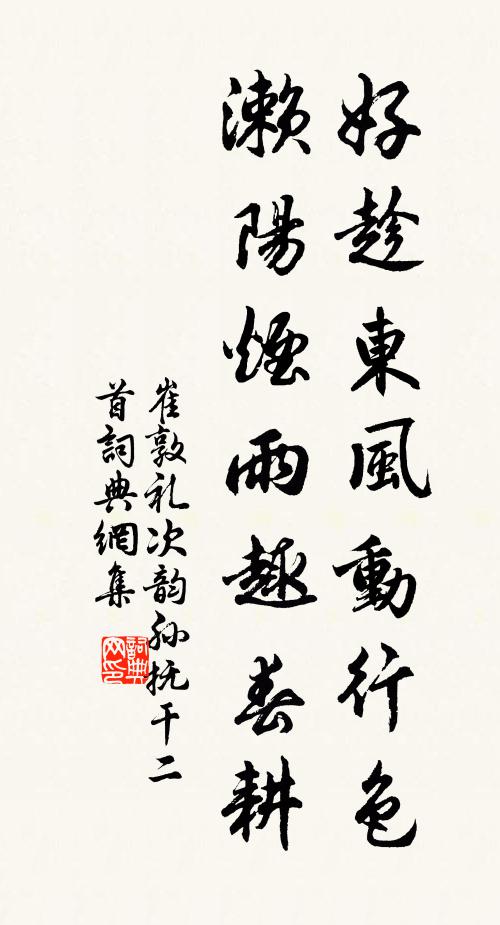 好趁東風動行色
瀨陽煙雨趣春耕
崔敦礼次韵孙抚干二
首詞典網集
詞典
网印